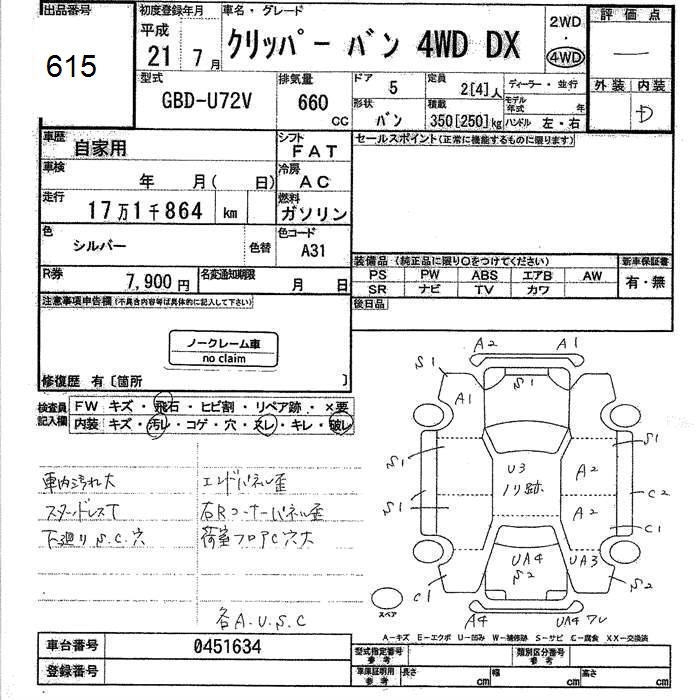 出品番号
615
初度登録年月
平成
21 7月
車名・グレード
クリッパー バン 4WD DX
2WD
・
4WD
評価点
—
外装 内装
D
型式
GBD-U72V
排気量
660
CC
ドア
5
定員
2[4]人
ディーラー・並行
形状
バン
積載
350[250]kg
モデル年式 年
ハンドル 左・右
車歴
自家用
シフト
FAT
セールスポイント(正常に機能するものに限ります)
車検
年 月( 日)
冷房
AC
走行
17万1千864 km
燃料
ガソリン
色
シルバー
色替
色コード
A31
装備品 (純正品に限り○をつけてください)
新車保証書
PS PW ABS エアB AW
SR ナビ TV カワ
有・無
R券
7,900円
名変通知期限
月 日
後日品
注意事項申告欄(不具合内容等は具体的に記入して下さい)
ノークレーム車
no claim
修復歴 有〔箇所 〕
検査員
記入欄
FW キズ・飛石・ヒビ割・リペア跡・×要
内装 キズ・汚レ・コゲ・穴・スレ・キレ・破レ
車内汚れ大
エンドパネル歪
スタッドレスT
右Rコーナーパネル歪
下廻りS.C.穴
荷室フロアC穴大
各A.U.S.C
A2 A1
S1 S1
A1
S1 U3 S1
ノリ跡 A2
S1 C2
A2
C1
UA4 UA3
S2
C1 S2
スペア
A4 UA4 ワレ
A-キズ E-エクボ U-凹み W-補修跡 S-サビ C-腐食 XX-交換済
車台番号
0451634
登録番号
型式指定番号
参考
類別区分番号
参考
車庫証明用
参考
長さ cm
幅 cm
高さ cm